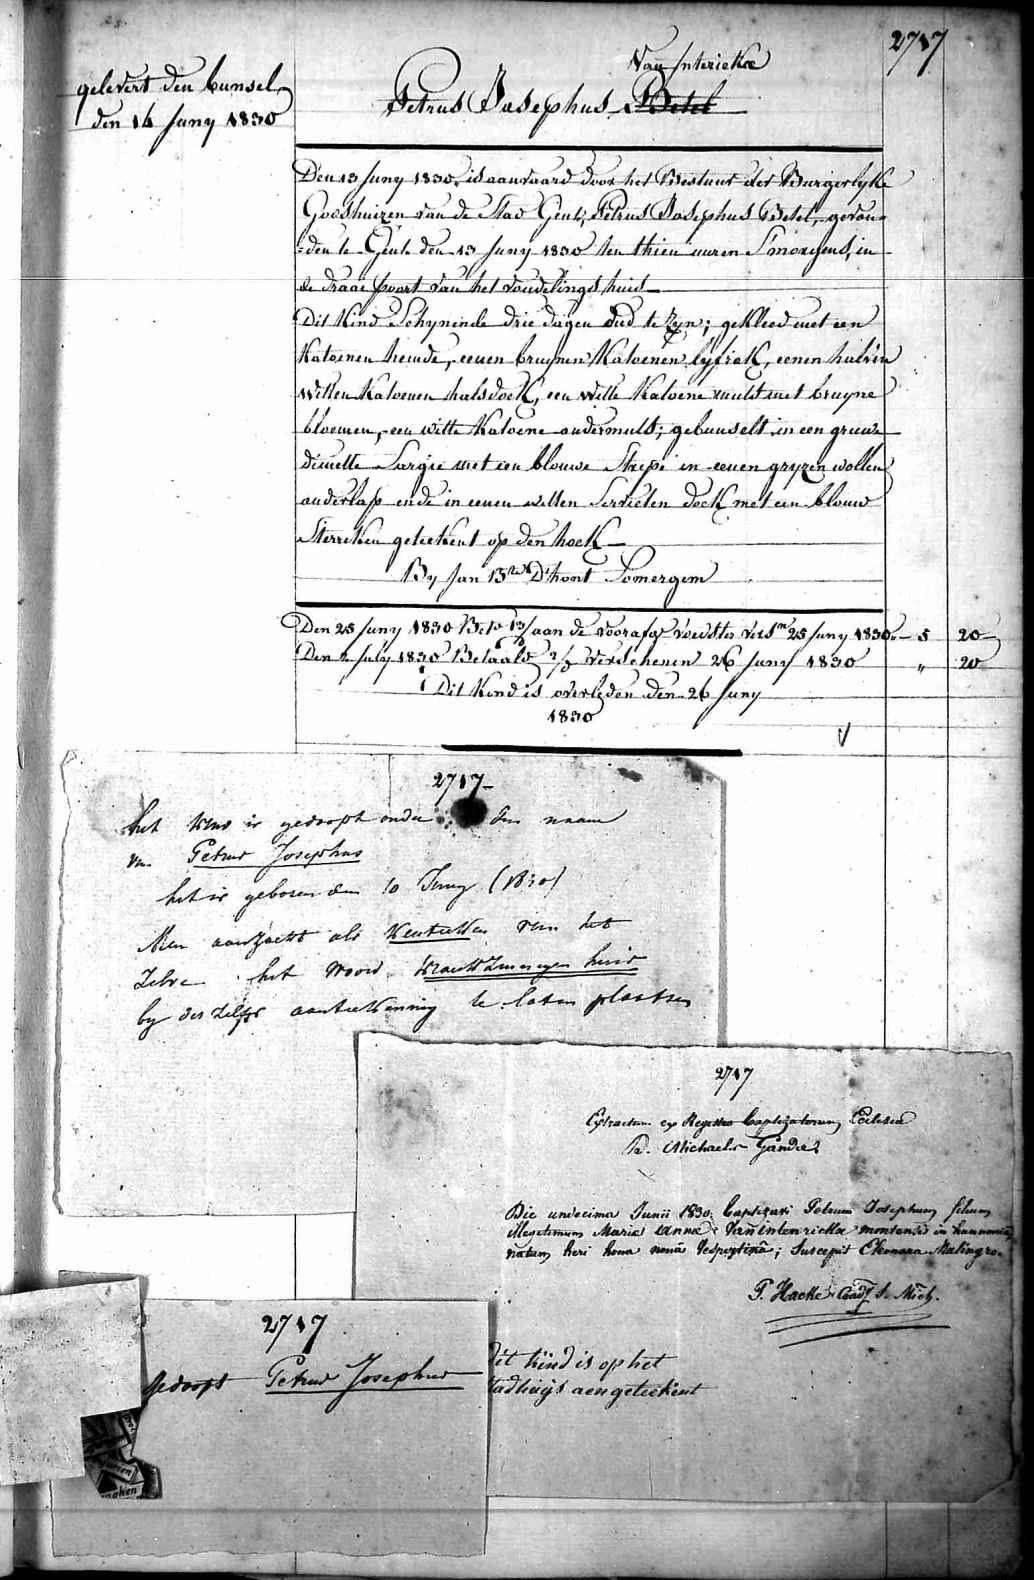 2717
gelevert den bunsel
den 14 Juny 1830
Van Interickx
Petrus Josephus Betel
Den 13 Juny 1830 is aanvaard door het Bestuur der Burgerlyke
Godshuizen van de Stad Gent, Petrus Josephus Betel, gevon-
-den te Gent den 13 Juny 1830 ten thien uuren S'morgens, in
de draai poort van het vondelings huis
Dit Kind Schynende drie dagen oud te zyn; gekleed met een
Katoenen hemde, eenen bruynen Katoenen lyfrok, eenen halven
witten Katoenen halsdoek, een witte Katoene muts met bruyne
bloemen, een witte Katoene ondermuts; gebunselt in een grauwe
Sargie met een blauwe Strepe in eenen gryzen wollen
onderlap ende in eenen witten Servieten doek met een blauw
Sterreken geteekent op den hoek
By Jan Bte D'hont Somergem
Den 25 Juny 1830 aan de voorafg voedster 25 Juny 1830 5 20
Den July 1830 Betaald verschenen 26 Juny 1830 " 20
Dit Kind is overleden den 26 Juny
1830
2717
het kind is gedoopt onder den naam
van Petrus Josephus
het is geboren den 10 Juny (1830)
Men aanzoekt als Kenteeken van het
Zelve het woord huis
by des zelfs aanteekening te laten plaatsen
2717
Extractum ex Registro baptizatorum Ecclesiæ
Pa. Michaelis Gandæ
Die undecima Junii 1830 baptizavi Petrum Josephum filium
illegitimum Mariæ Annæ Van interickx montensis in hannonia,
natum heri hora nona vespertina; Suscepit Eleonora Malingre
P. Hacke Coadj. S. Mich.
dit kind is op het
Stadhuijs aengeteekent
2717
gedoopt Petrus Josephus